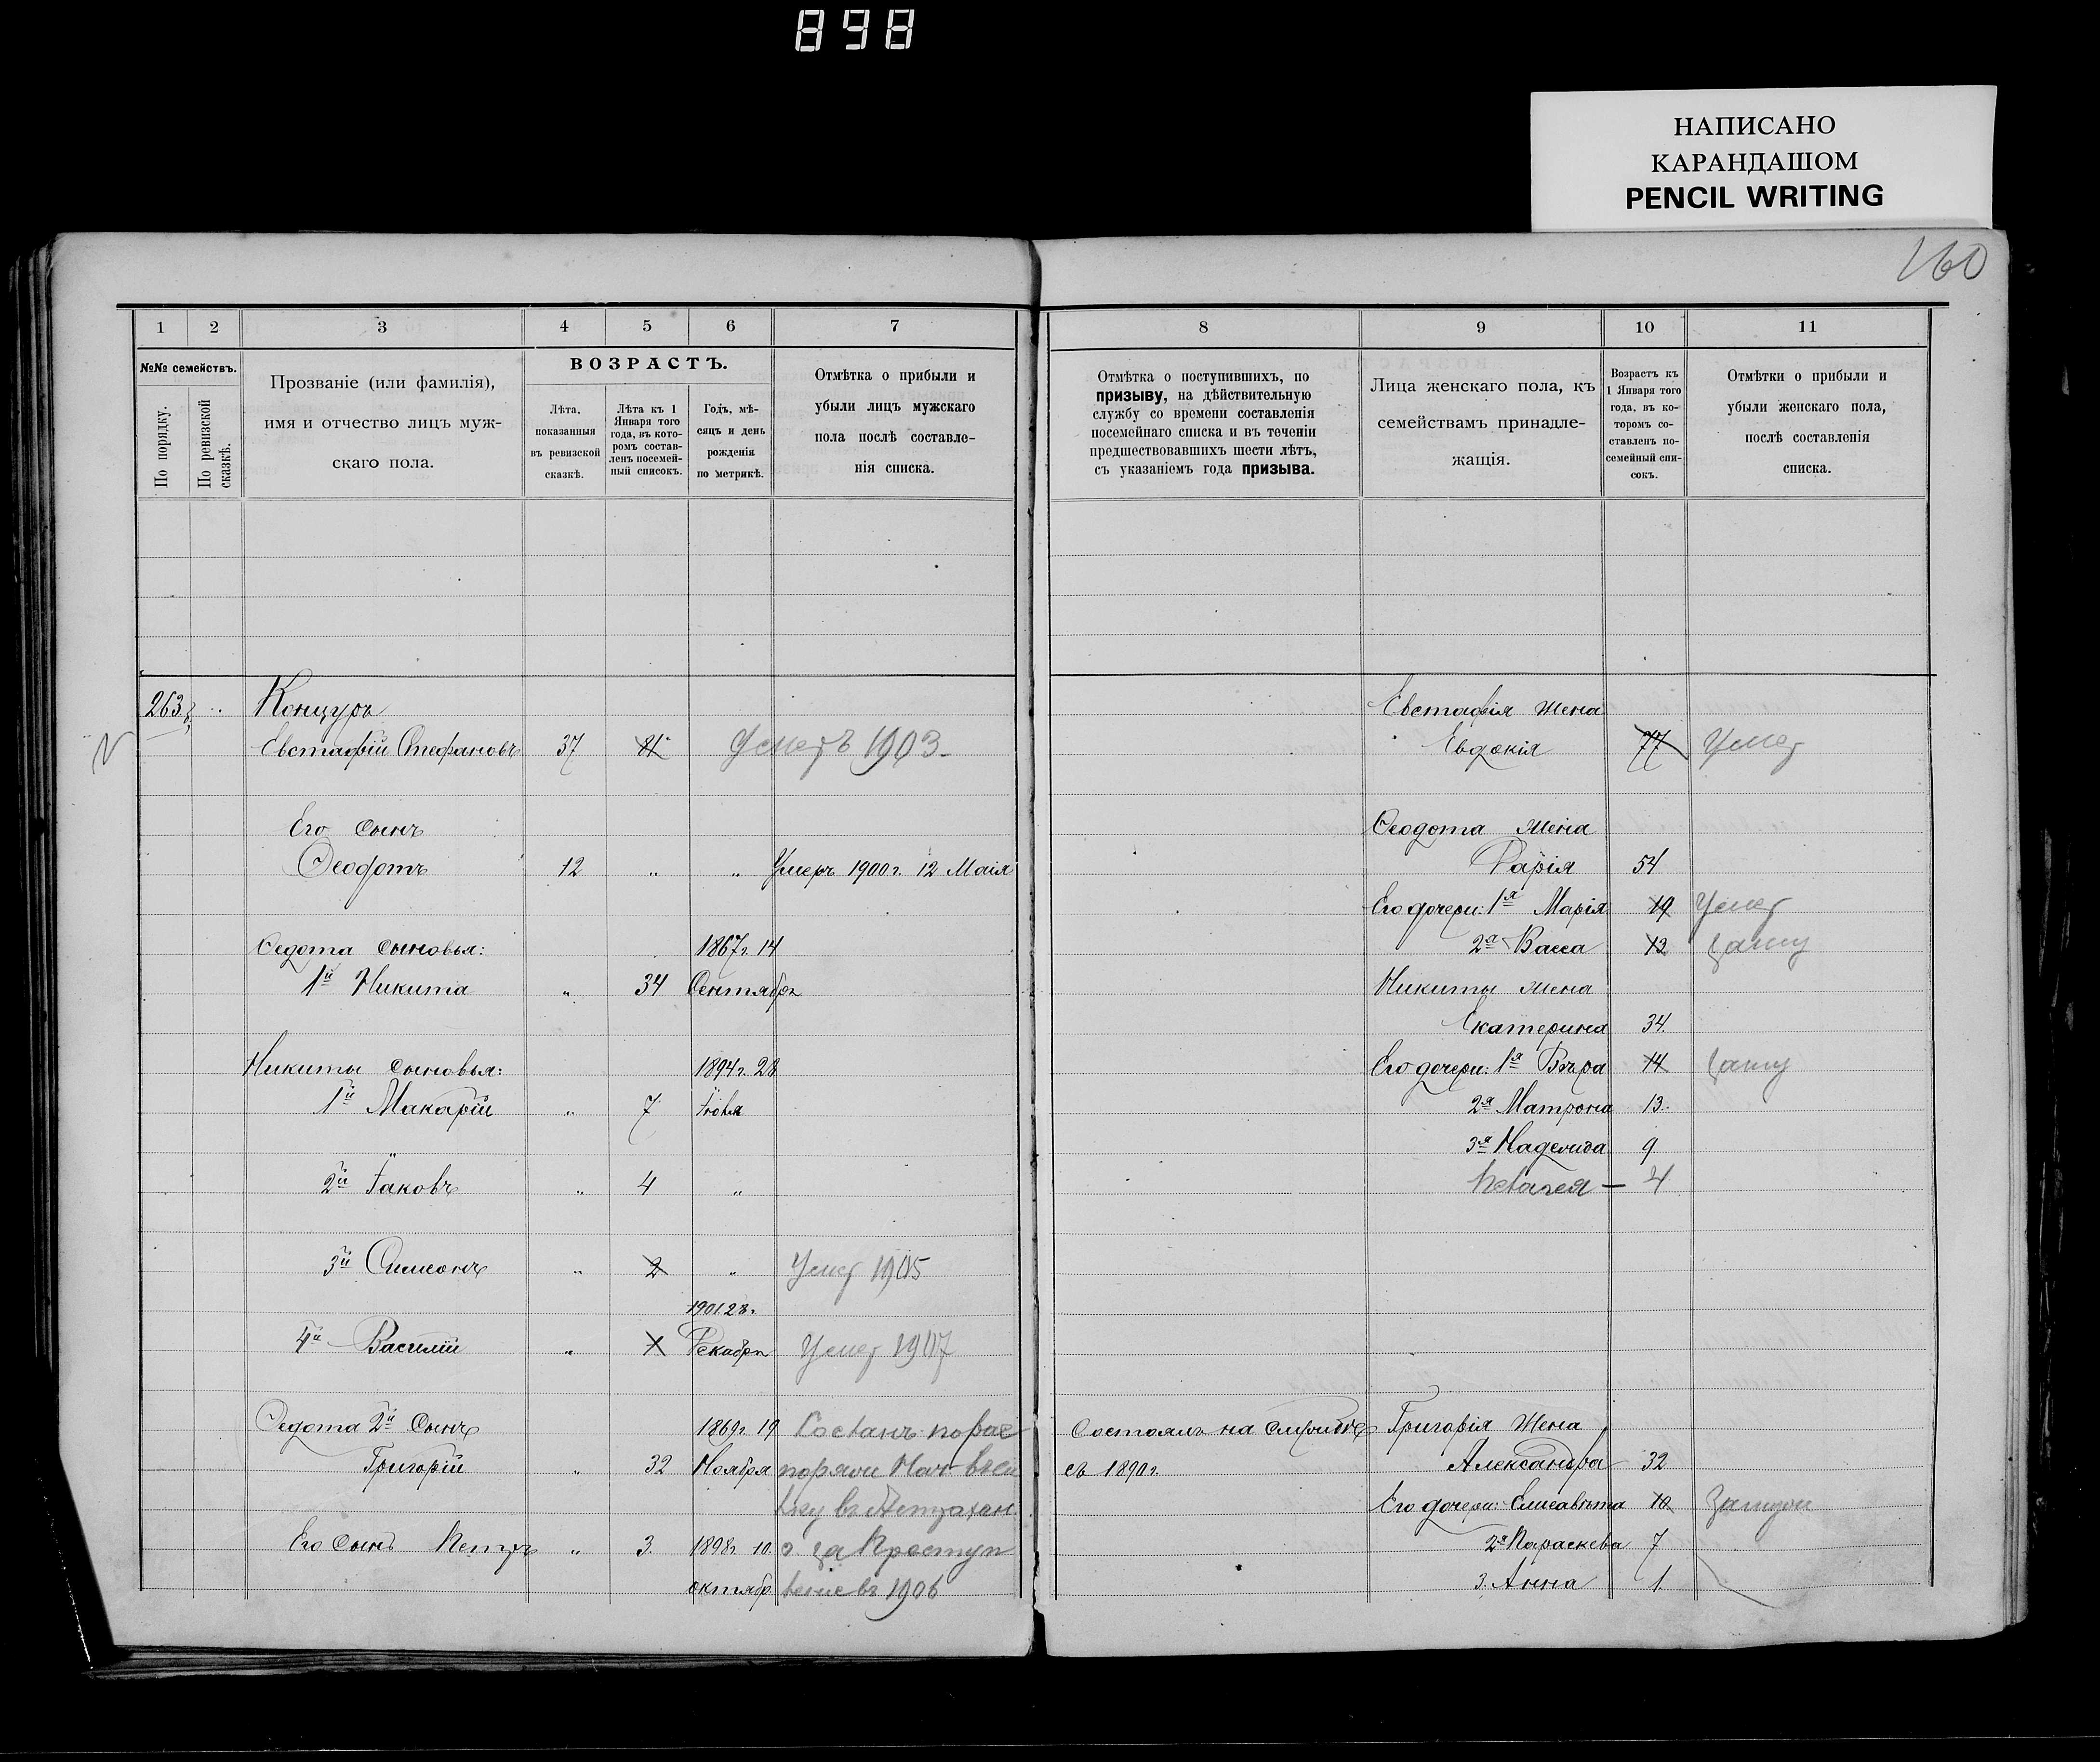 898
НАПИСАНО
КАРАНДАШОМ
PENCIL WRITING
160
1 2 3 4 5 6 7
№№ семействъ.
По порядку.
По ревизской сказкѣ.
Прозваніе (или фамилія),
имя и отчество лицъ муж-
скаго пола.
ВОЗРАСТЪ.
Лѣта,
показанныя
въ ревизской
сказкѣ.
Лѣта къ 1
Января того
года, въ кото-
ромъ состав-
ленъ посемей-
ный списокъ.
Годъ, мѣ-
сяцъ и день
рожденія
по метрикѣ.
Отмѣтка о прибыли и
убыли лицъ мужскаго
пола послѣ составле-
нія списка.
263
Концуръ
Евстафій Стефановъ 37 81 Умеръ 1903
Его сынъ
Ѳеодотъ 12 " " Умеръ 1900 г. 12 Маія
Ѳедота сыновья: 1867 г. 14
1й Никита " 34 Сентября
Никиты сыновья: 1894 г. 28
1й Макарій " 7 Іюля
2й Іаковъ " 4 "
3й Симеонъ " 2 " Умер 1905
1901 28
4й Василій " 1 Декабря Умер 1907
Ѳедота 2й Сынъ 1869 г. 19
Григорій " 32 Ноября
Его Сынъ Петръ " 3 1898 г. 10
октябр.
въ 1906
8 9 10 11
Отмѣтка о поступившихъ, по
призыву, на дѣйствительную
службу со времени составленія
посемейнаго списка и въ теченіи
предшествовавшихъ шести лѣтъ,
съ указаніемъ года призыва.
Лица женскаго пола, къ
семействамъ принадле-
жащія.
Возрастъ къ
1 Января того
года, въ ко-
торомъ со-
ставленъ по-
семейный спи-
сокъ.
Отмѣтки о прибыли и
убыли женскаго пола,
послѣ составленія
списка.
Евстафія жена
Евдокія 77 Умер
Ѳеодота жена
Дарія 54
Его дочери: 1я Марія 19 Умер
2я Васса 12 замуж
Никиты жена
Екатерина 34
Его дочери: 1я Вѣра 14 замуж
2я Матрона 13
3я Надежда 9
Пелагея — 4
Состоялъ на службѣ Григорія Жена
съ 1890 г. Александра 32
Его дочери: Елисавѣта 10 замуж
2я Параскева 7
3. Анна 1